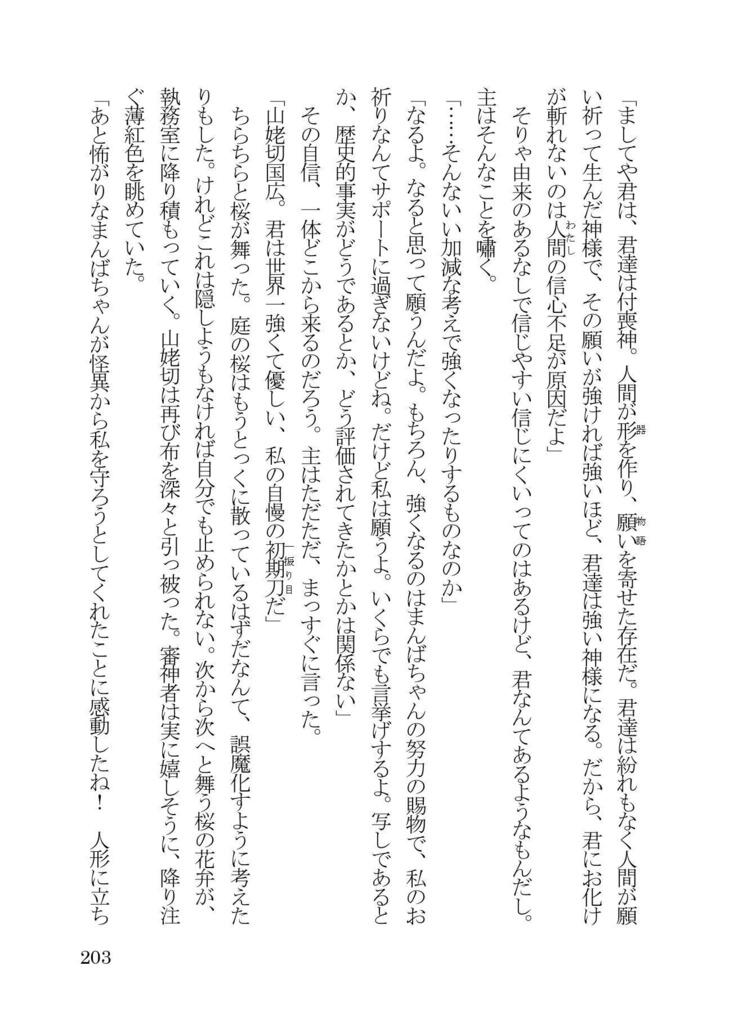 「ましてや君は、君達は付喪神。人間が形を作り、願いを寄せた存在だ。君達は紛れもなく人間が願
い祈って生んだ神様で、その願いが強ければ強いほど、君達は強い神様になる。だから、君にお化け
が斬れないのは人間の信心不足が原因だよ」
器
物語
わたし
　そりゃ由来のあるなしで信じやすい信じにくいってのはあるけど、君なんてあるようなもんだし。
主はそんなことを嘯く。
「……そんないい加減な考えで強くなったりするものなのか」
「なるよ。なると思って願うんだよ。もちろん、強くなるのはまんばちゃんの努力の賜物で、私のお
祈りなんてサポートに過ぎないけどね。だけど私は願うよ。いくらでも言挙げするよ。写しであると
か、歴史的事実がどうであるとか、どう評価されてきたかとかは関係ない」
　その自信、一体どこから来るのだろう。主はただただ、まっすぐに言った。
「山姥切国広。君は世界一強くて優しい、私の自慢の初期刀だ」
振り目
　ちらちらと桜が舞った。庭の桜はもうとっくに散っているはずだなんて、誤魔化すように考えた
りもした。けれどこれは隠しようもなければ自分でも止められない。次から次へと舞う桜の花弁が、
執務室に降り積もっていく。山姥切は再び布を深々と引っ被った。審神者は実に嬉しそうに、降り注
ぐ薄紅色を眺めていた。
「あと怖がりなまんばちゃんが怪異から私を守ろうとしてくれたことに感動したね！　人形に立ち
203